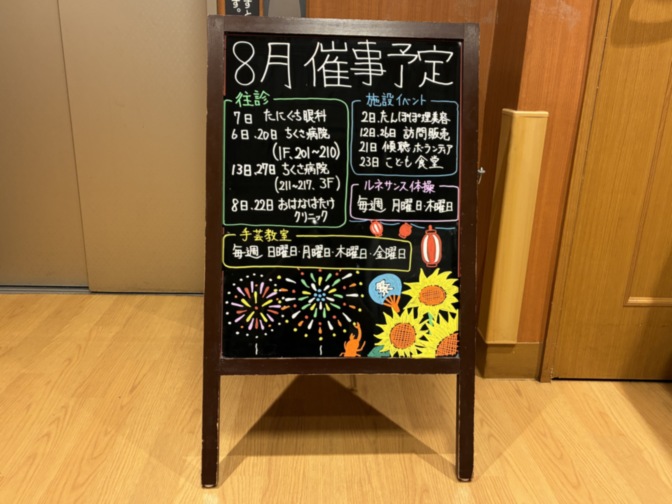 8月 催事予定
往診
7日 たにぐち眼科
6日、20日 ちくさ病院
(1F、201～210)
13日、27日 ちくさ病院
(211～217、3F)
8日、22日 おはなばたけ
クリニック
施設イベント
2日、たんぽぽ理美容
12日、26日 訪問販売
21日 傾聴ボランティア
23日 こども食堂
ルネサンス体操
毎週 月曜日・木曜日
手芸教室
毎週 日曜日・月曜日・木曜日・金曜日
祭